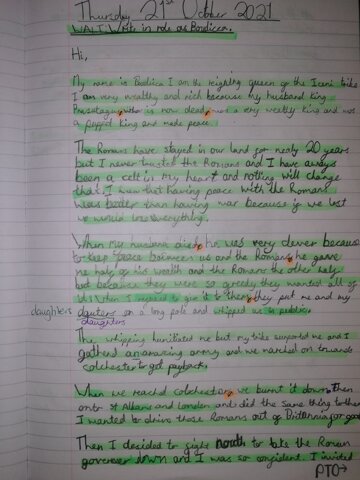 Thursday 21st October 2021
WALT Write in role as Boudicca.
Hi,
My name is Boudica I am the reighing queen of the Iceni tribe
I am very wealthy and rich because my husband king
Prasutagus who is now dead, was a very weathly king and was
a puppet king and made peace.
The Romans have stayed in our land for nealy 20 years
but I never trusted the Romans and I have always
been a celt in my heart and noting will change
that. I knew that having peace with the Romans
was better than having war because if we lost
we would lose everything.
When my husband died, he was very clever because
to keep peace between us and the Romans, he gave
me half of his wealth and the Romans the other half
but because they were so greedy they wanted all of
it. When I refused to give it to them, they put me and my
daughters dauters on a long pole and whipped us in public.
daughters
The whipping humiliated me but my tribe supported me and I
gatherd an amazing army and we marched on towards
colchester to get payback.
When we reachd colchester, we burnt it down, then
onto St Albans and London and did the same thing to them
I wanted to drive those Romans out of Britannia for good
Then I decided to fight north to take the Roman
goverener down and I was so confident. I invited
PTO→